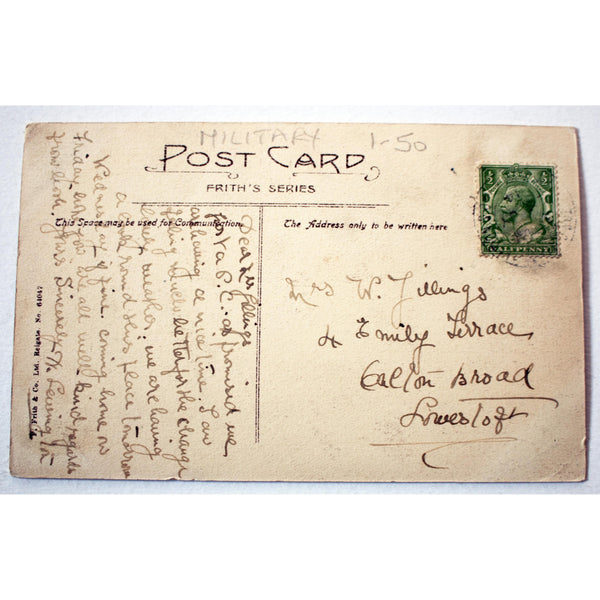 MILITARY 1-50
POST CARD
FRITH'S SERIES
This Space may be used for Communication
The Address only to be written here
HALFPENNY
Dear Mrs Jillings
Just a P.C. as promised we
are having a nice time. I am
feeling much better for the change
lovely weather: we are having
a round this place tomorrow
Wednesday if fine. coming home on
Friday hope you are all well kind regards
from both. yrs Sincerely
Mrs W. Jillings
4 Emily Terrace
Oulton Broad
Lowestoft
F. Frith & Co. Ltd., Reigate. No. 64047